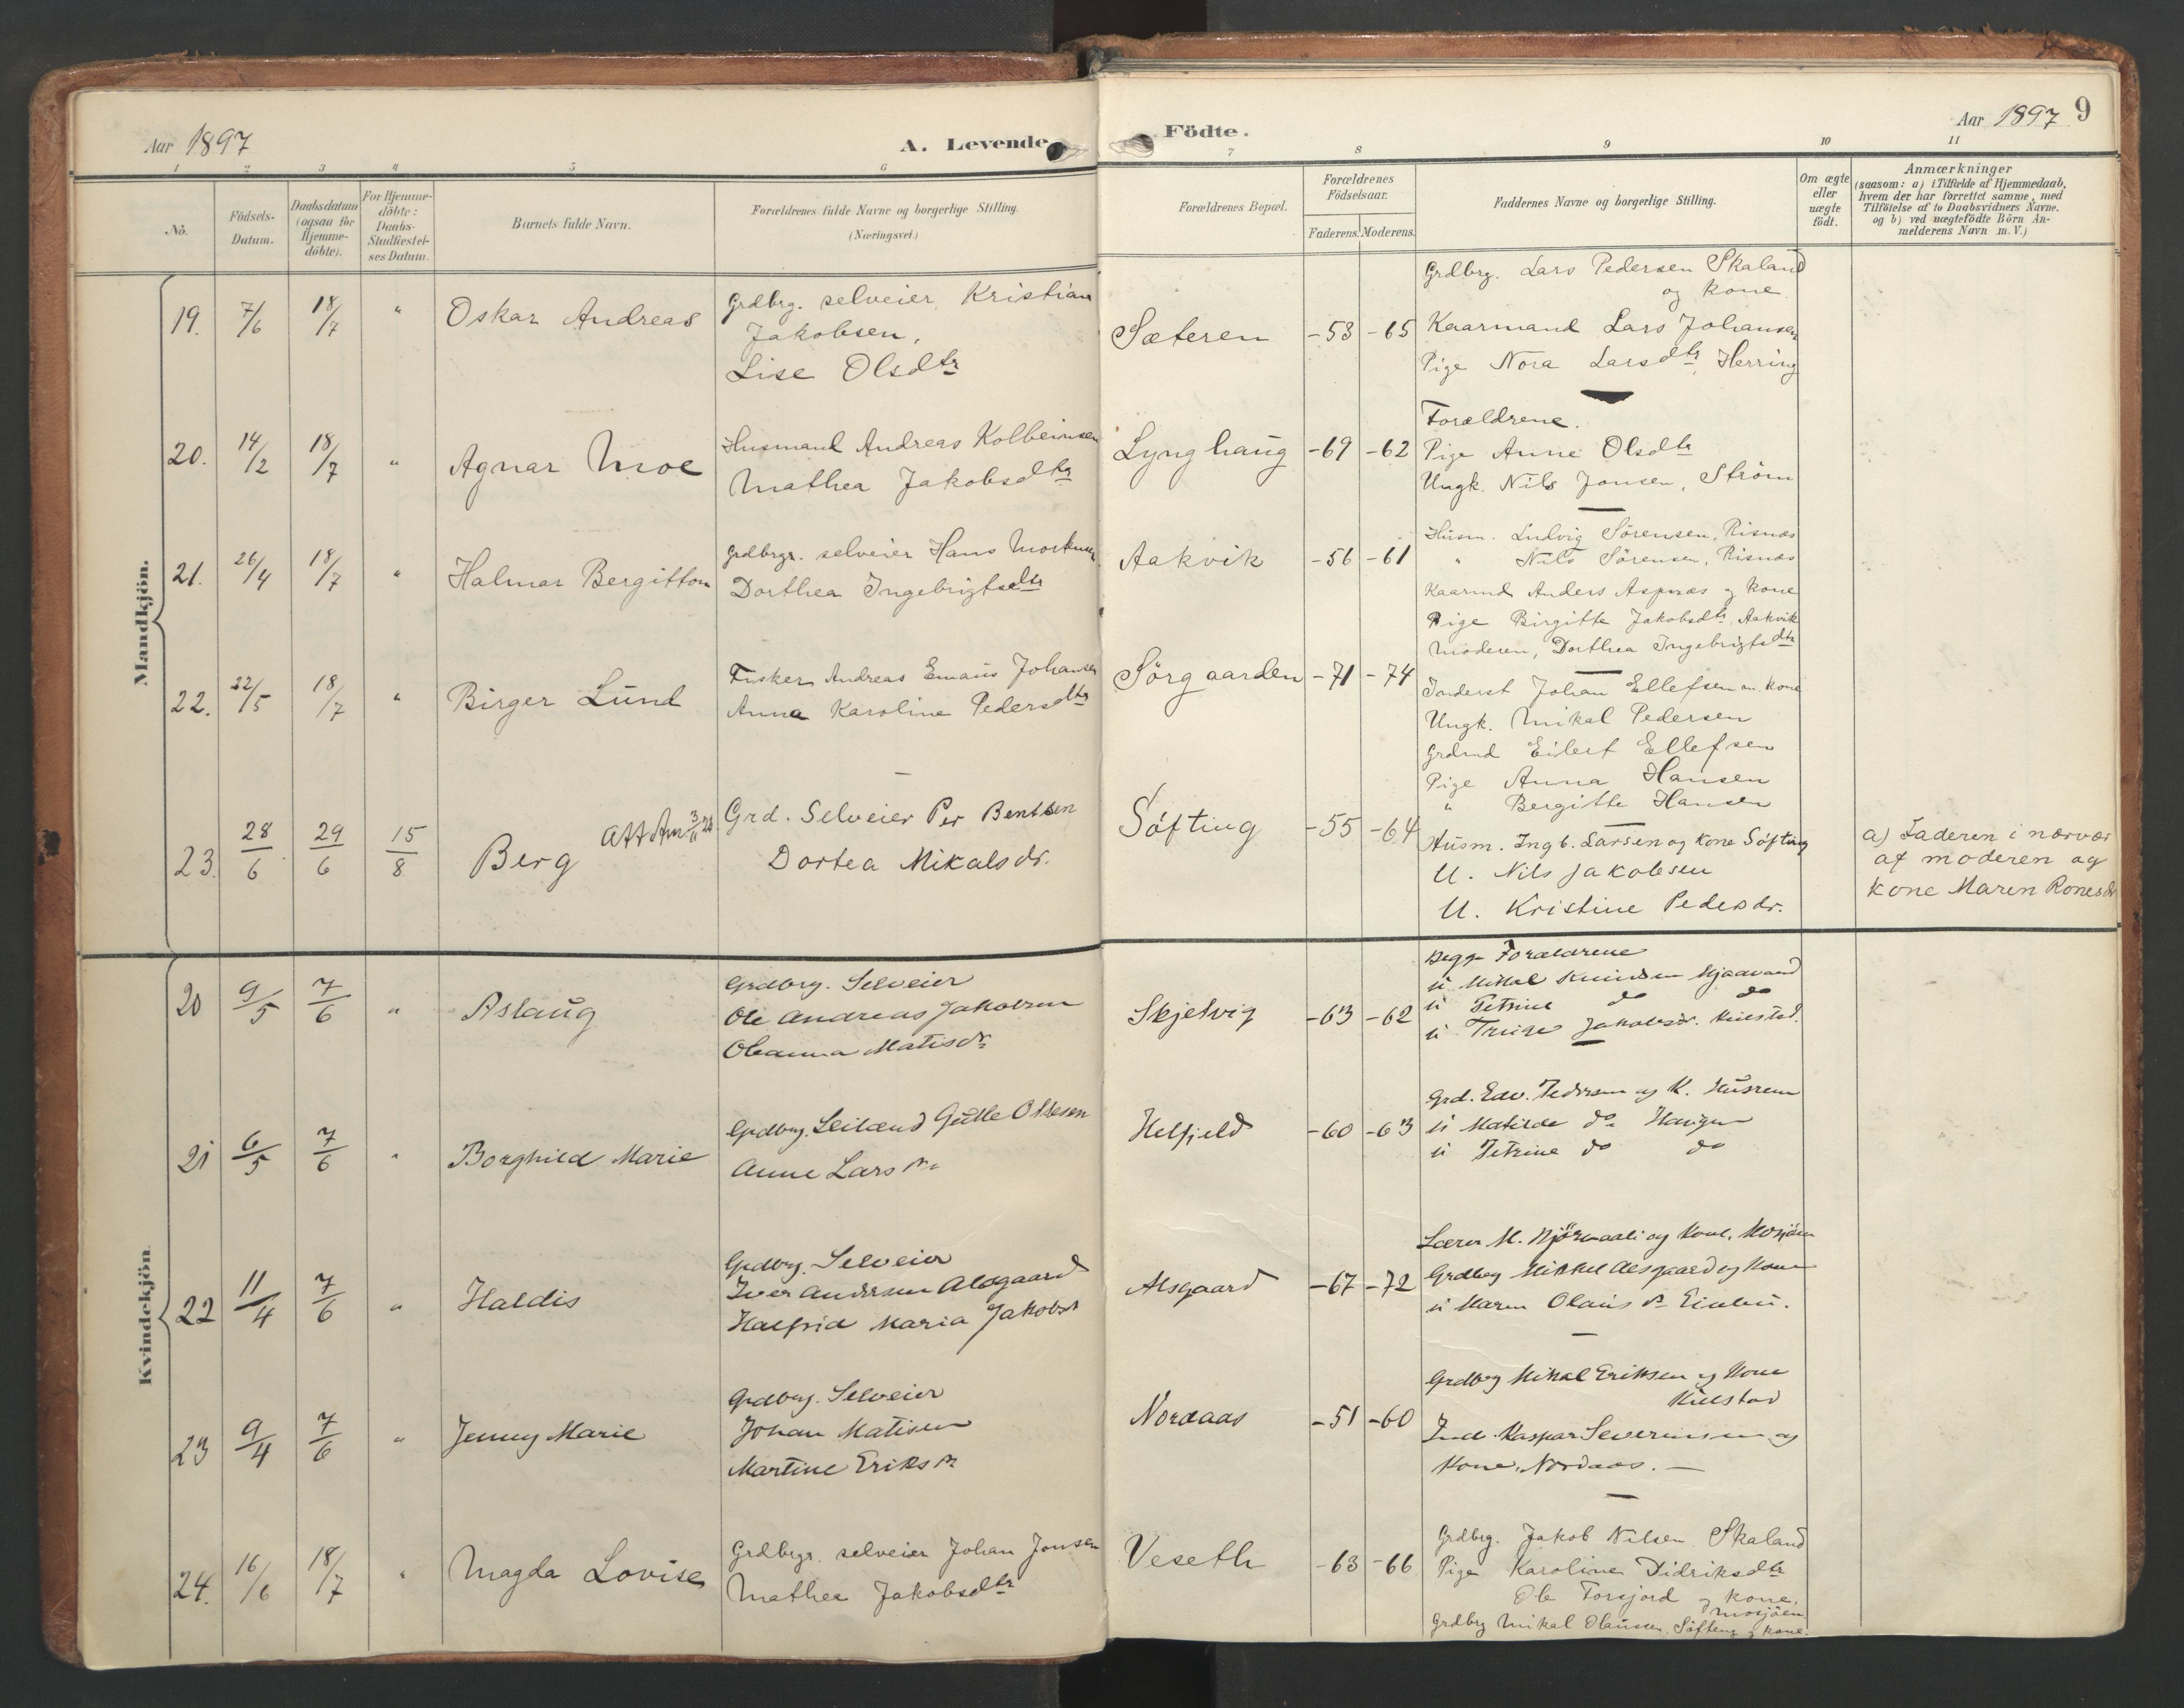 Aar 1897
A. Levende
1 2 3 4 5 6
No.
Födsels-Datum.
Daabsdatum (ogsaa for Hjemme-döbte).
For Hjemme-döbte: Daabs-Stadfæstel-ses Datum.
Barnets fulde Navn.
Forældrenes fulde Navne og borgerlige Stilling.
(Næringsvei.)
Mandkjön.
19. 7/6 18/7 " Oskar Andreas
Grdbrg. selveier Kristian
Jakobsen,
Lise Olsdtr
20. 14/2 18/7 " Agnar Moe
Husmand Andreas Kolbeinsen
Mathea Jakobsdtr
21. 26/4 18/7 " Halmar Bergitton
Grdbrgr. selveier Hans
Dorthea Ingebrigtsdtr
22. 22/5 18/7 " Birger Lund
Fisker Andreas Emaus Johansen
Anna Karoline Pedersdtr
23. 28/6 29/6 15/8 Berg
Att
Grd. Selveier Per Bentsen
Dortea Mikalsdr.
Kvindekjön.
20 9/5 7/6 " Aslaug
Grdbrg. Selveier
Ole Andreas Jakobsen
Oleanna Matisdr
21 6/5 7/6 " Borghild Marie
Grdbrg.
Anne Lars
22 11/4 7/6 " Haldis
Grdbrg. Selveier
Iver Andersen Alsgaard
Halfrid Maria Jakobsd
23 9/4 7/6 " Jenny Marie
Grdbrg. Selveier
Johan Matisen
Martine Eriks
24. 16/6 18/7 " Magda Lovise
Grdbrgr. selveier Johan Jonsen
Mathea Jakobsdtr
Födte.
Aar 1897 9
7 8 9 10 11
Forældrenes Bopæl.
Forældrenes Födselsaar.
Faderens. Moderens.
Faddernes Navne og borgerlige Stilling.
Om ægte eller uægte födt.
Anmærkninger
(saasom: a) i Tilfælde af Hjemmedaab,
hvem der har forrettet samme, med
Tilföielse af to Daabsvidners Navne.
og b) ved uægtefödte Börn An-
melderens Navn m. V.)
Sæteren -53 -65
Grdbrg. Lars Pedersen Skaland
og kone
Kaarmand Lars Johansen
Pige Nora Larsdtr, Herring
Lynghaug -69 -62
Forældrene.
Pige Anne Olsdtr
Ungk. Nils Jonsen, Ström
Aakvik -56 -61
Husm. Ludvig Sörensen, Risnæs
" Nils Sörensen, Risnæs
Kaarmd Anders Aspnæs og kone
Pige Birgitte Jakobsdtr Aakvik
Moderen, Dorthea Ingebrigtsdtr
Sörgaarden -71 -74
Inderst Johan Ellefsen m. kone
Ungk. Mikal Pedersen
Grdmd Eilert Ellefsen
Pige Anna Hansen
" Bergitte Hansen
Söfting -55 -64
Husm. Ingb. Larsen og kone Söfting
U. Nils Jakobsen
U. Kristine Pedersdr.
a) Faderen i nærvær
af moderen og
kone Maren
Skjelvig -63 -62
Begge Forældrene
U Mikal Knudsen
U Petrine do do
U Jakobsdr.
Helfjeld -60 -63
Grd. Edv. Pedersen og K.
U Matilde do
U Petrine do do
Alsgaard -67 -72
Lærer M. og Kone, Mosjöen
Grdbrg Mikkel Alsgaard og Kone
U Maren Olaus
Nordaas -51 -60
Grdbrg Mikal Eriksen og Kone
Ind. Kaspar Severinsen og
Kone, Nordaas.
Veseth -63 -66
Grdbrg. Jakob Nilsen Skaland
Pige Karoline Didriksdtr
Ole Forsjord og kone,
Mosjöen
Grdbrg Mikal Olausen, Söfting og kone.